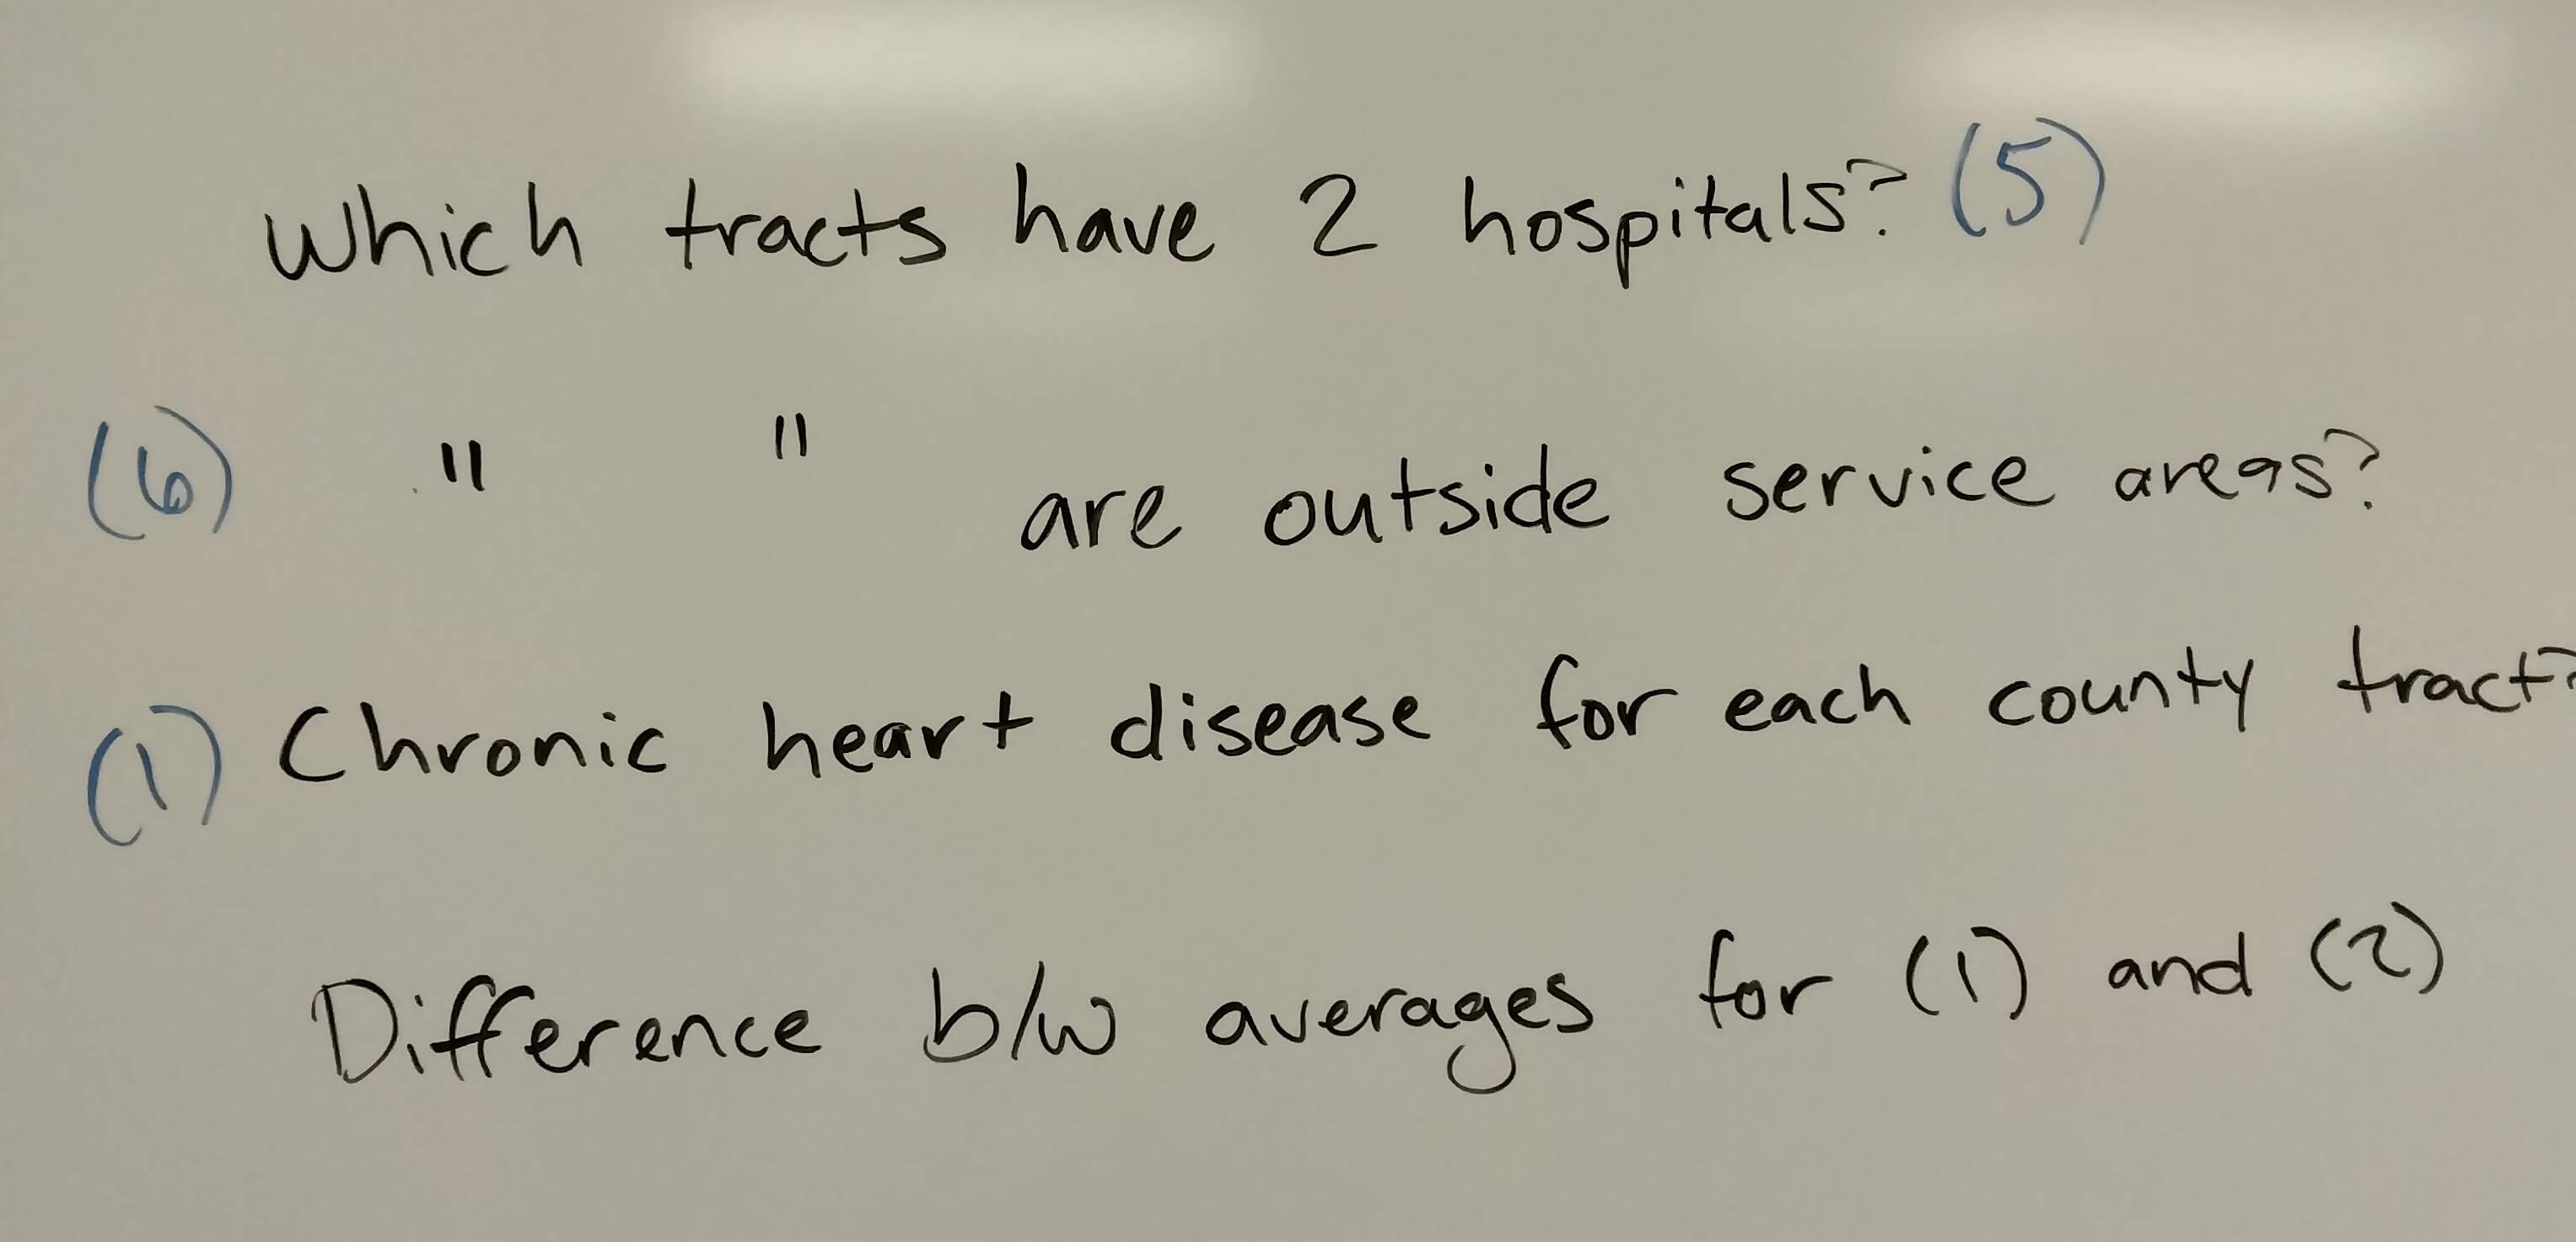 Which tracts have 2 hospitals? (5)
(6) " " are outside service areas?
(1) Chronic heart disease for each county tract?
Difference b/w averages for (1) and (2)